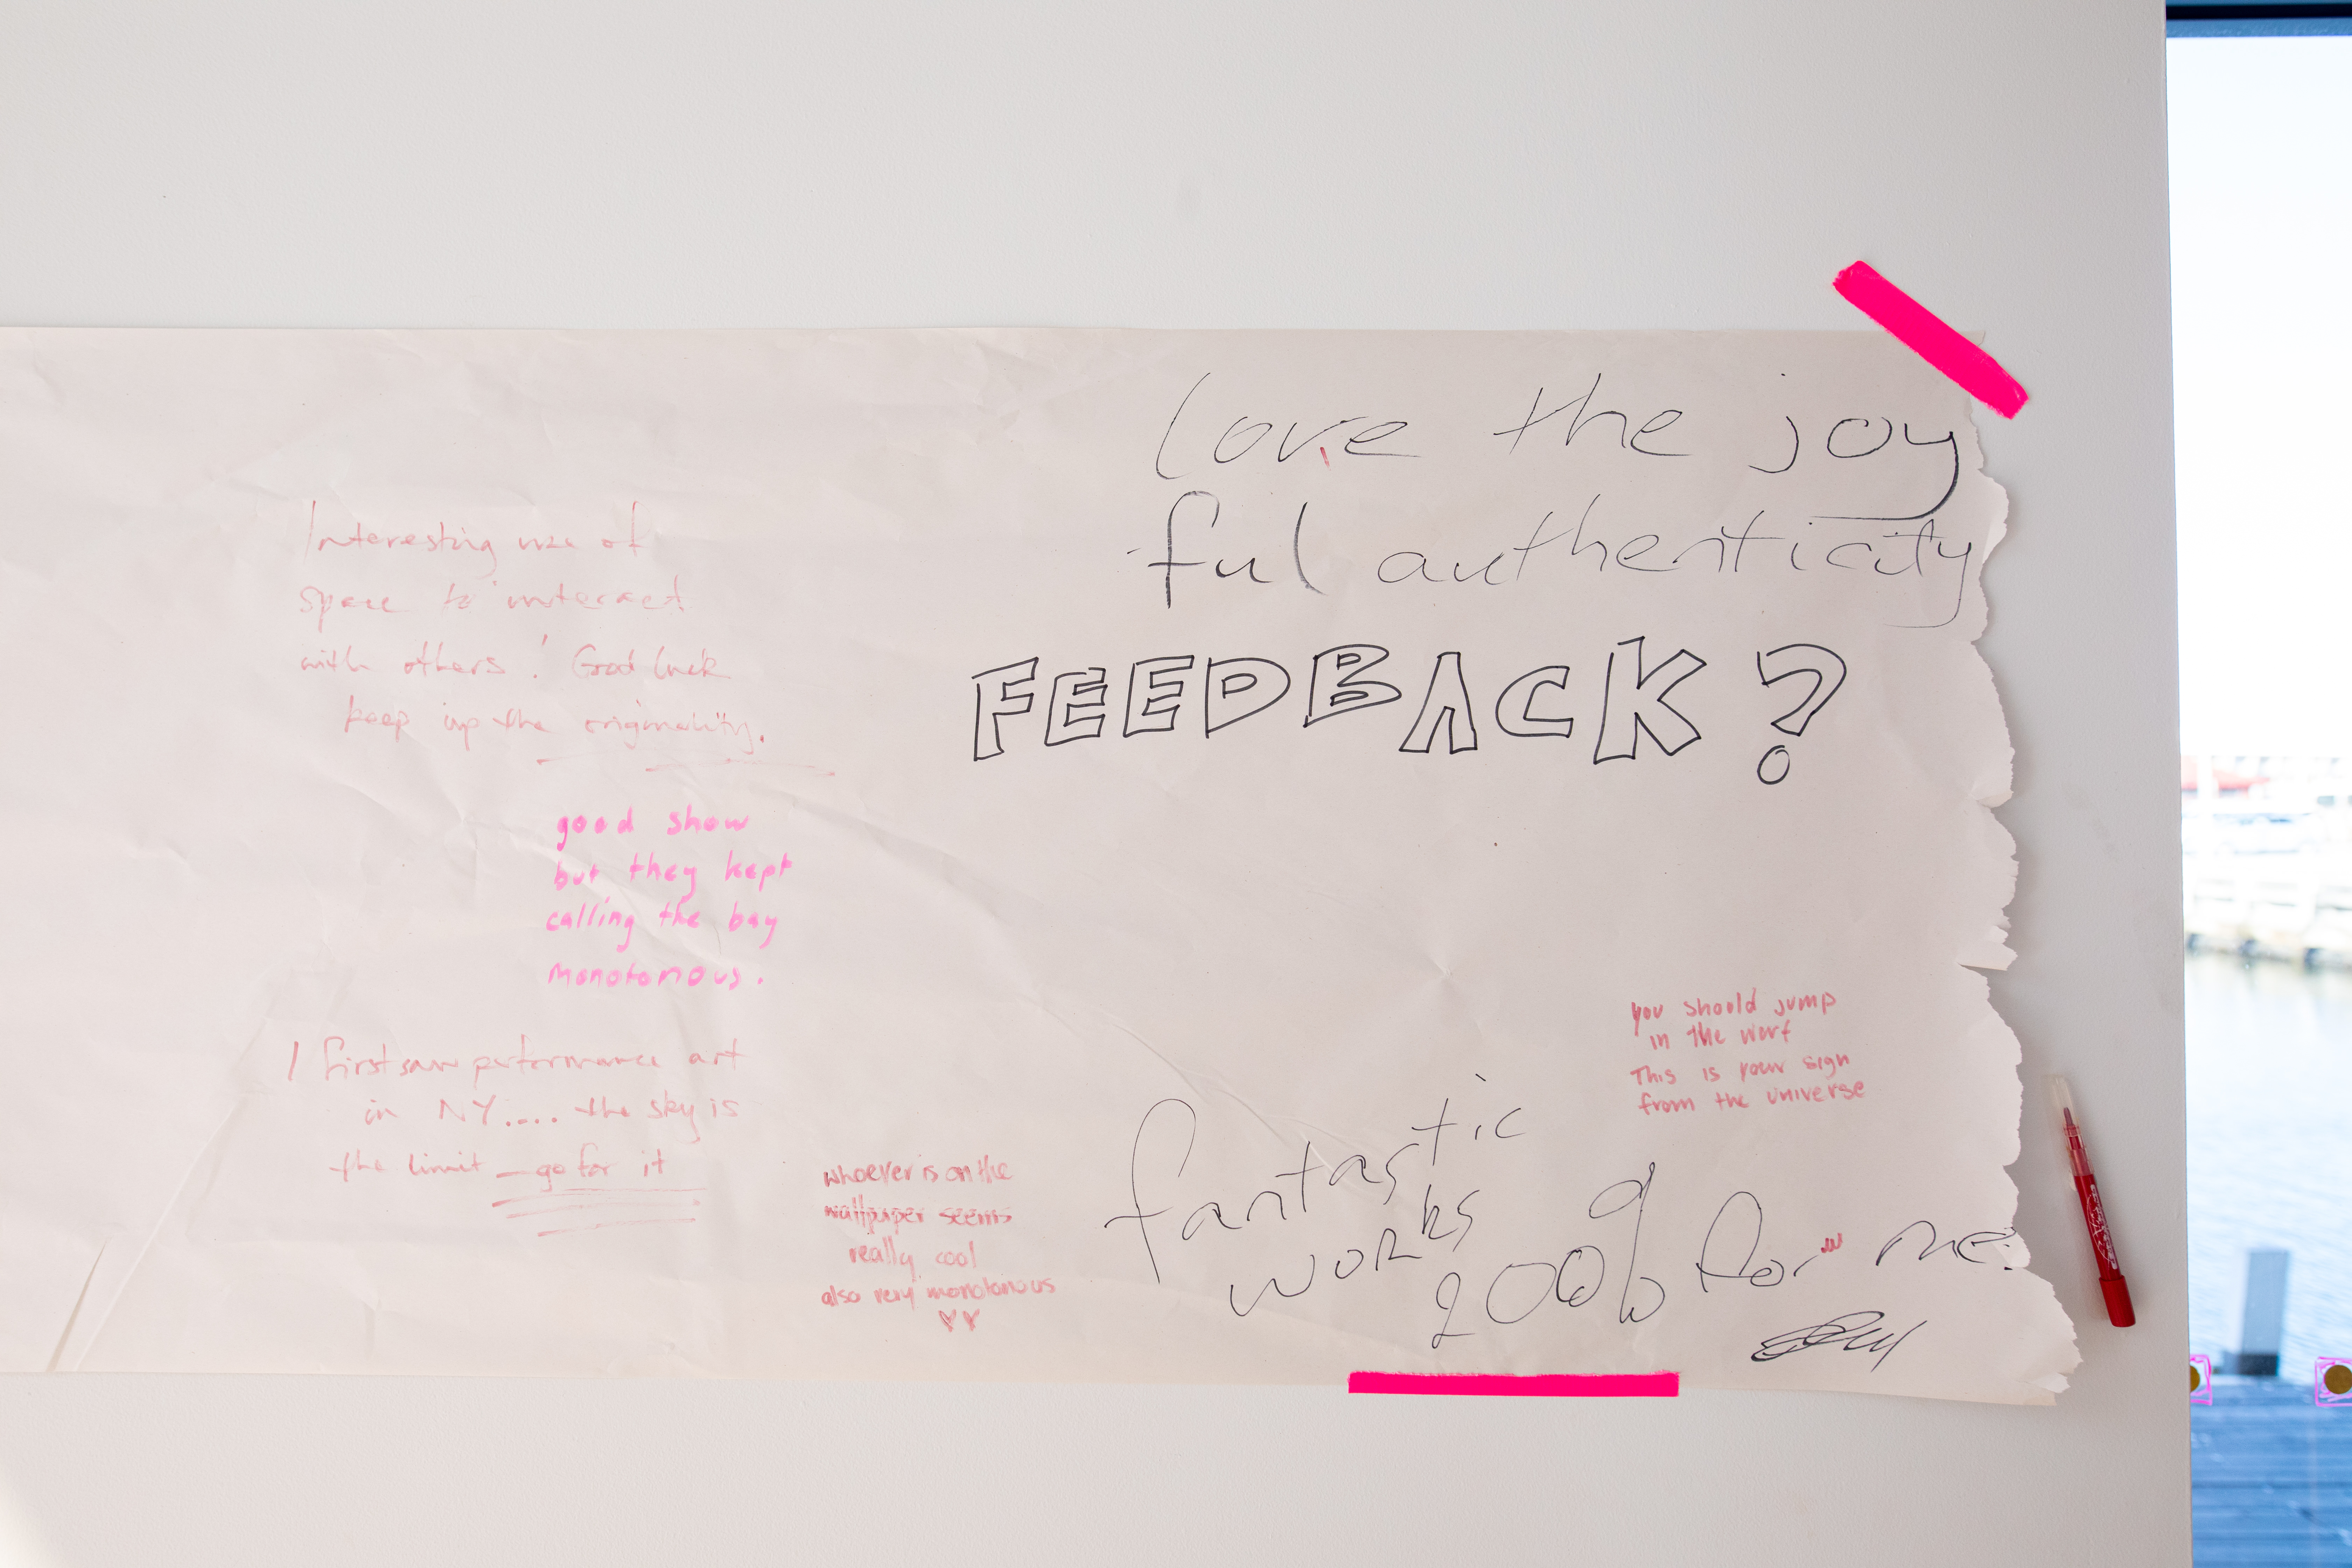 love the joy
ful authenticity
FEEDBACK?
Interesting use of
space to interact
with others! Good luck
keep up the originality.
good show
but they kept
calling the bay
monotonous.
I first saw performance art
in NY.... the sky is
the limit – go for it
whoever is on the
wallpaper seems
really cool
also very monotonous
♥♥
you should jump
in the worf
This is your sign
from the universe
fantastic
works
200% for me!